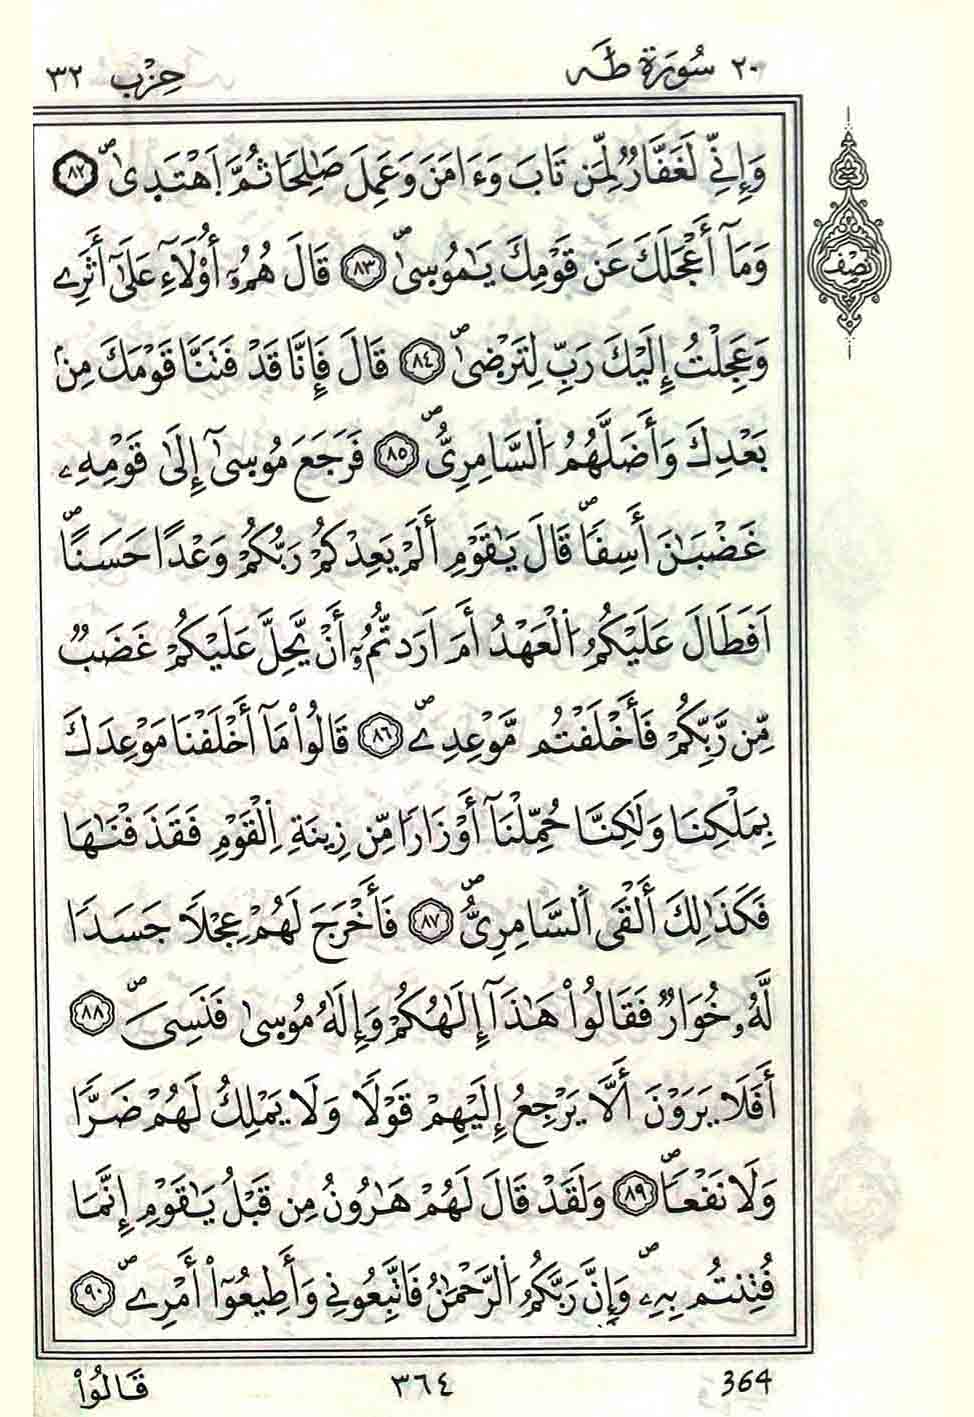 ٢٠ سُورَةُ طَهَ حِزْب ٣٢
وَإِنِّے لَغَفَّارٞ لِّمَن تَابَ وَءَامَنَ وَعَمِلَ صَٰلِحاٗ ثُمَّ اَهْتَدِىٰۖ ٨٢
وَمَآ أَعْجَلَكَ عَن قَوْمِكَ يَٰمُوسىٰۖ ٨٣ قَالَ هُمُۥٓ أُوْلَآءِ عَلَىٰٓ أَثَرِے
نصف
وَعَجِلْتُ إِلَيْكَ رَبِّ لِتَرْضىٰۖ ٨٤ قَالَ فَإِنَّا قَدْ فَتَنَّا قَوْمَكَ مِنۢ
بَعْدِكَ وَأَضَلَّهُمُ اَ۬لسَّامِرِيُّۖ ٨٥ فَرَجَعَ مُوسىٰٓ إِلَىٰ قَوْمِهِۦ
غَضْبَٰنَ أَسِفاٗۖ قَالَ يَٰقَوْمِ أَلَمْ يَعِدْكُمْ رَبُّكُمْ وَعْداً حَسَناًۖ
اَفَطَالَ عَلَيْكُمُ اُ۬لْعَهْدُ أَمَ اَرَدتُّمُۥٓ أَنْ يَّحِلَّ عَلَيْكُمْ غَضَبٞ
مِّن رَّبِّكُمْ فَأَخْلَفْتُم مَّوْعِدِےۖ ٨٦ قَالُواْ مَآ أَخْلَفْنَا مَوْعِدَكَ
بِمَلْكِنَا وَلَٰكِنَّا حُمِّلْنَآ أَوْزَاراٗ مِّن زِينَةِ اِ۬لْقَوْمِ فَقَذَفْنَٰهَا
فَكَذَٰلِكَ أَلْقَى اَ۬لسَّامِرِيُّۖ ٨٧ فَأَخْرَجَ لَهُمْ عِجْلاٗ جَسَداٗ
لَّهُۥ خُوَارٞ فَقَالُواْ هَٰذَآ إِلَٰهُكُمْ وَإِلَٰهُ مُوسىٰ فَنَسِيَۖ ٨٨
أَفَلَا يَرَوْنَ أَلَّا يَرْجِعُ إِلَيْهِمْ قَوْلاٗ وَلَا يَمْلِكُ لَهُمْ ضَرّاٗ
وَلَا نَفْعاٗۖ ٨٩ وَلَقَدْ قَالَ لَهُمْ هَٰرُونُ مِن قَبْلُ يَٰقَوْمِ إِنَّمَا
فُتِنتُم بِهِۦۖ وَإِنَّ رَبَّكُمُ اُ۬لرَّحْمَٰنُ فَاتَّبِعُونِي وَأَطِيعُوٓاْ أَمْرِےۖ ٩٠
364 ٣٦٤ قَالُواْ